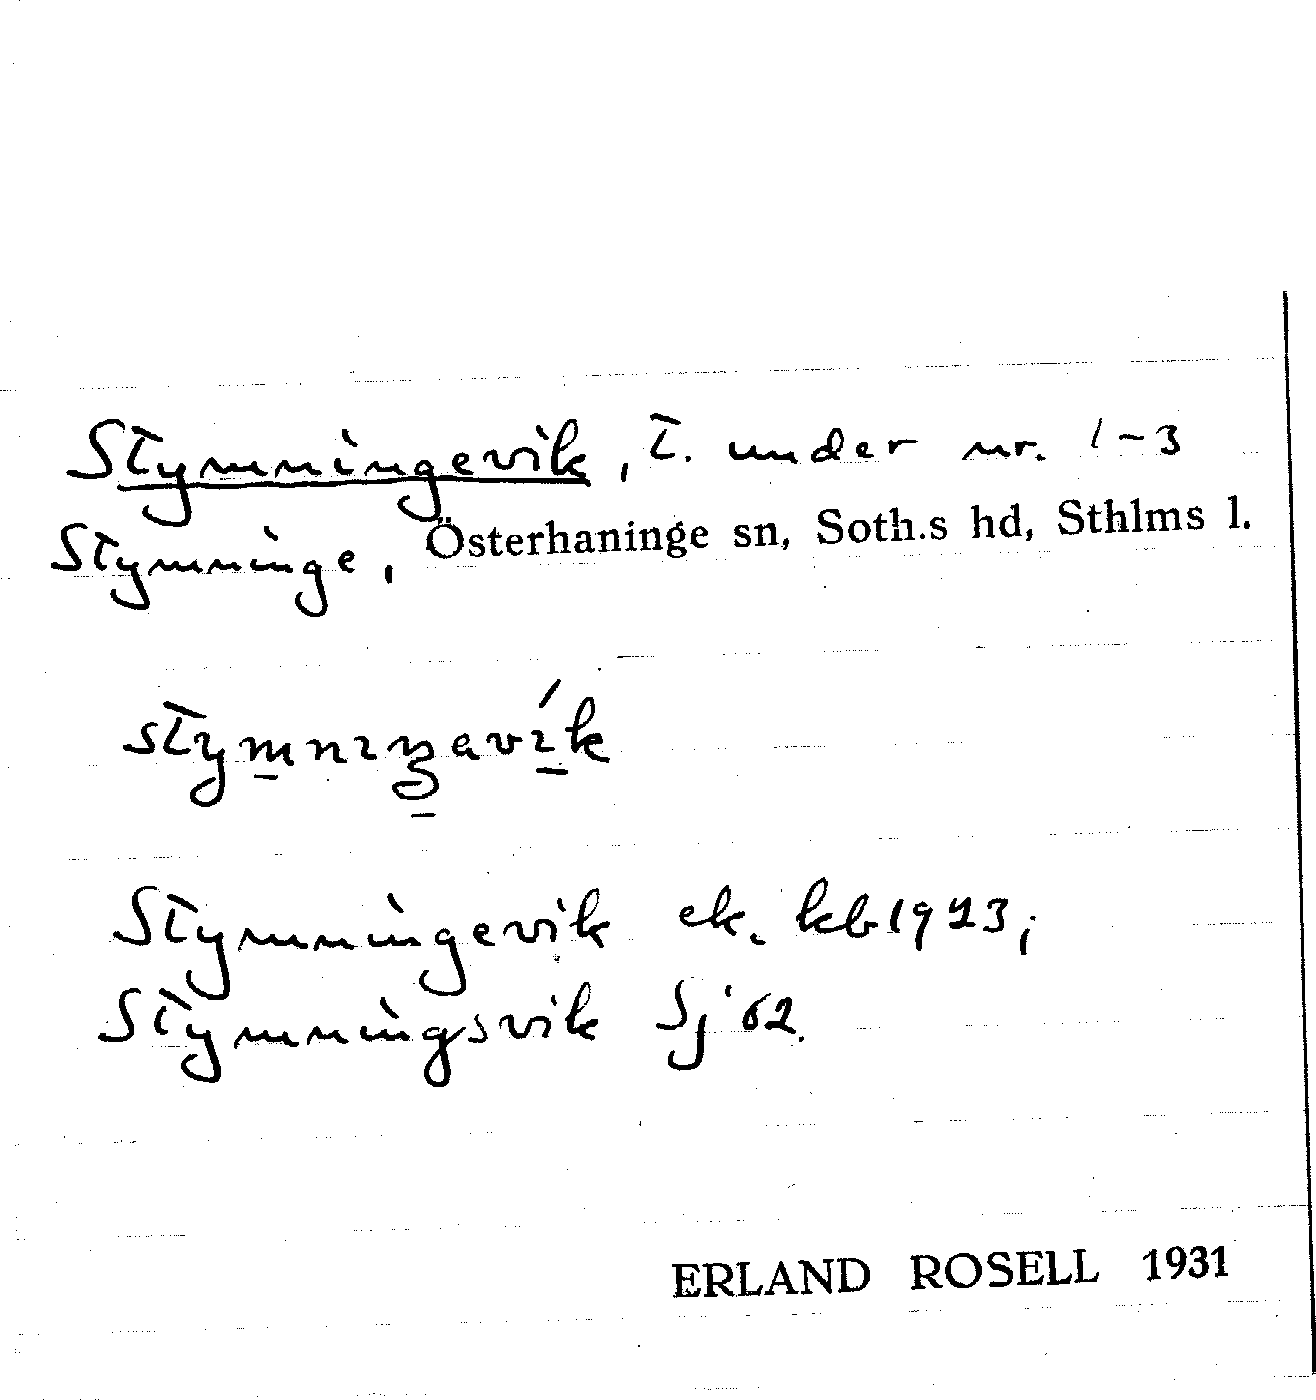 Stymningevik, t. under nr. 1-3
Stymninge, Österhaninge sn, Soth.s hd, Sthlms l.
Stymningevik ek. kb 1923;
Stymningsvik Sj '62.
ERLAND ROSELL 1931